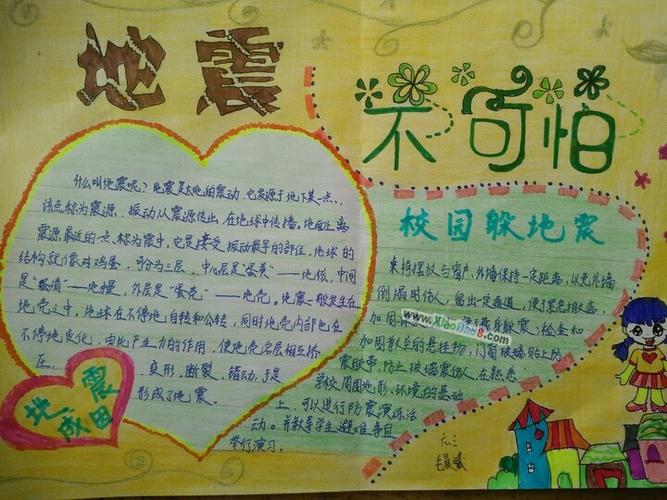 地震
不可怕
什么叫地震呢？地震是大地的震动，它发源于地下某一点，
该点称为震源，振动从震源传出，在地球中传播。地面上离
震源最近的一点称为震中，它是接受振动最早的部位，地球的
结构就像鸡蛋，可分为三层，中心层是“蛋黄”——地核，中间
是“蛋清”——地幔，外层是“蛋壳”——地壳。地震一般发生在
地壳之中，地球在不停地自转和公转，同时地壳内部也在
不停地变化，由此产生力的作用，使地壳岩层相互挤
压、变形、断裂、错动，于是
形成了地震。
地震
成因
校园躲地震
桌椅摆放与窗户、外墙保持一定距离，以免外墙
倒塌时伤人，留出一定通道，便于紧急撤离
加固课桌 便于藏身躲震；检查和
加固教室的悬挂物，门窗玻璃贴上防
震胶带，防止玻璃震伤人，在熟悉
学校周围地形、环境的基础
上，可以进行防震演练活
动。并教导学生避难
举行演习。
六三
毛晨曦
www.XiaoBao8.com